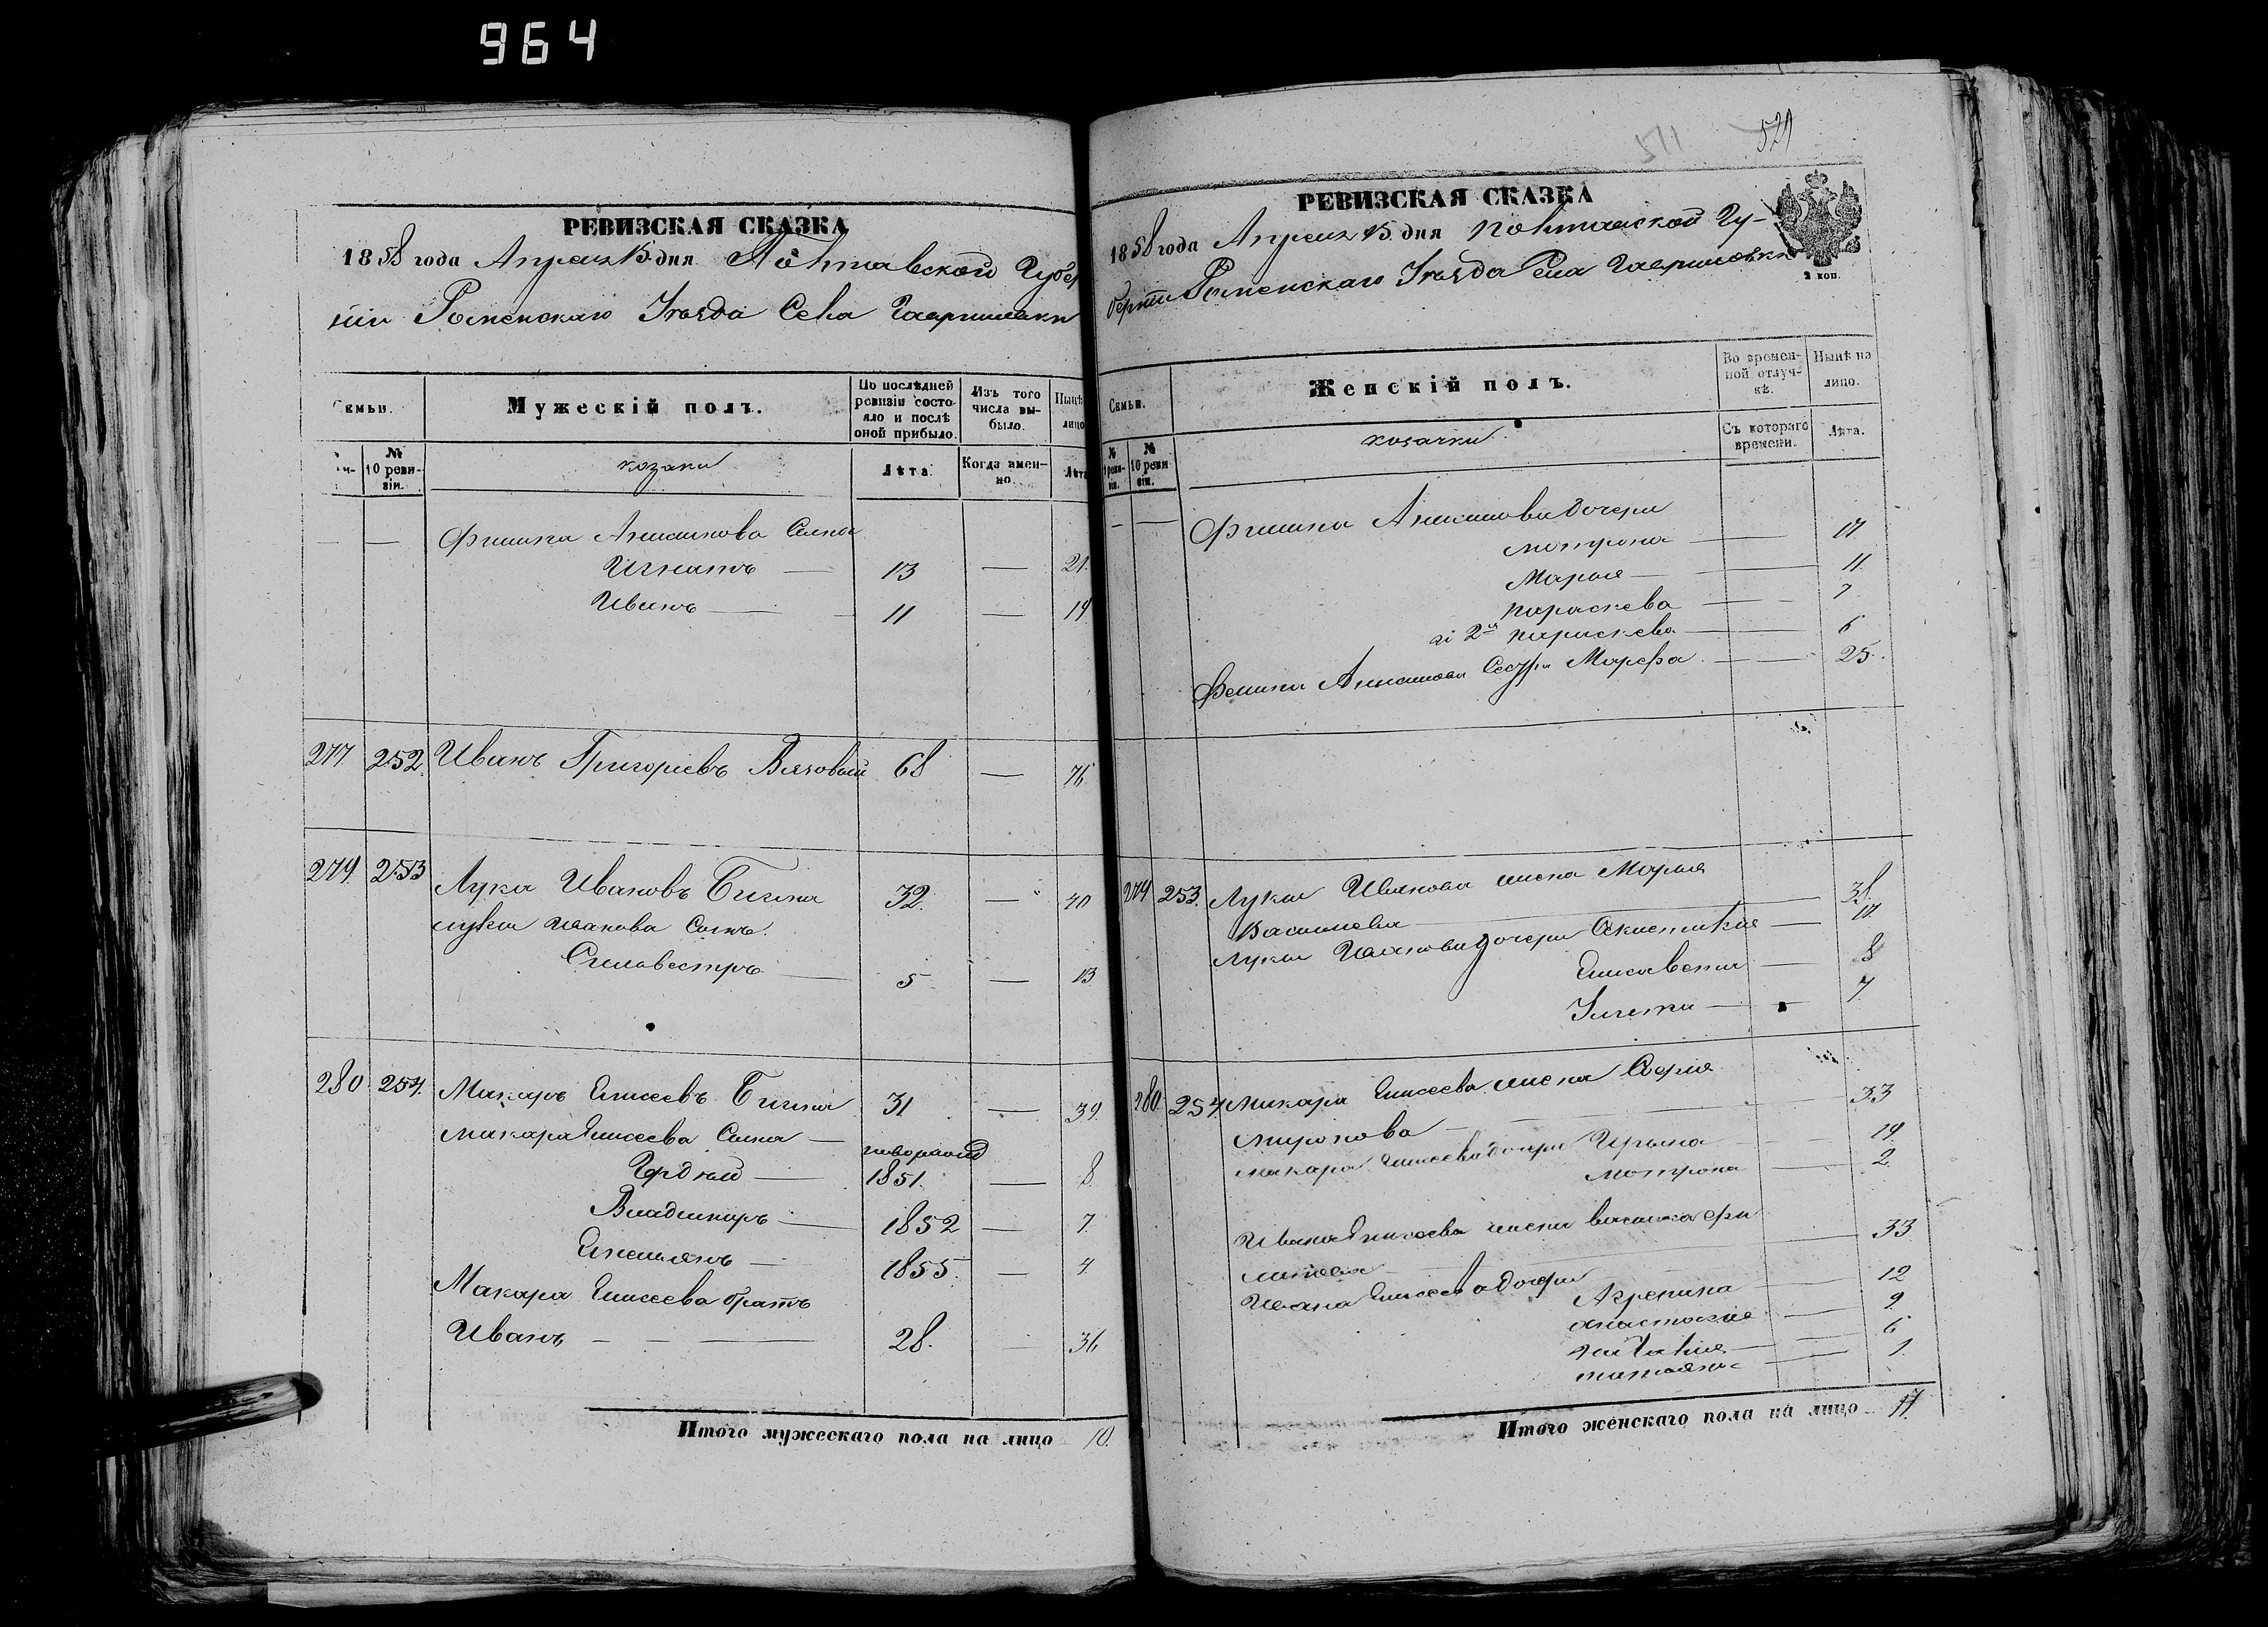 964
РЕВИЗСКАЯ СКАЗКА
1858 года Апреля 15 дня Полтавской Губер
ніи Роменскаго Уѣзда Села Гавришовки
Семьи.
Мужескій полъ.
По послѣдней ревизіи состояло и послѣ оной прибыло.
Изъ того числа выбыло.
Нынѣ
лицо
№ 10 ревизіи.
козаки
Лѣта.
Когда имен-
но.
Лѣта
— — Филипа Анисимова Сыны
Игнатъ — 13 — 21.
Иванъ — 11 — 19
277 252. Иванъ Григорьевъ Вязовый 68 — 76
279. 253 Лука Ивановъ 32. — 40
Луки Иванова Сынъ.
Силвестръ — 5 — 13
280 254. Макаръ Елисеевъ 31 — 39.
Макара Елисеева Сыны —
новорожд
Гордѣй — 1851. — 8
Владимиръ — 1852 — 7.
Емельянъ — 1855. — 4.
Макара Елисеева братъ
Иванъ — — — 28. 36
Итого мужескаго пола на лицо 10.
511 529
РЕВИЗСКАЯ СКАЗКА
1858 года Апреля 15 дня Полтавской Гу-
берніи Роменскаго Уѣзда Села Гавришовки
2 коп.
Семьи.
Женскій полъ.
Во времен-
ной отлуч-
кѣ.
Нынѣ на
лицо.
№ 9 ревизіи.
№ 10 ревизіи.
козачки
Съ котораго
времени.
Лѣта.
— — Филипа Анисимова дочери
Мотрона — 17
Марья — 11.
Параскева — 7
2я Параскева — 6
Филипа Анисимова Сестра Марфа — 25.
279 253. Луки Иванова жена Марья
Васильева — 38.
Луки Иванова дочери — 17.
Елисавета — 8
— 7
280 254. Макара Елисеева жена Софія
Миронова — 33
Макара Елисеева дочери Ирина 19.
Мотрона 2.
Ивана Елисеева жена Василиса
— 33
Ивана Елисеева дочери
Агрепина — 12
Анастасія — 9
Наталія — 6
Татьяна — 1.
Итого женскаго пола на лицо 17.